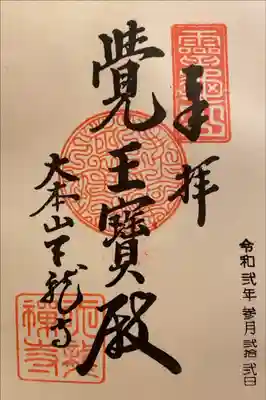 令和弐年 参月 弐拾弐日
靈龜山
奉拝
覺王寶殿
大本山天龍寺